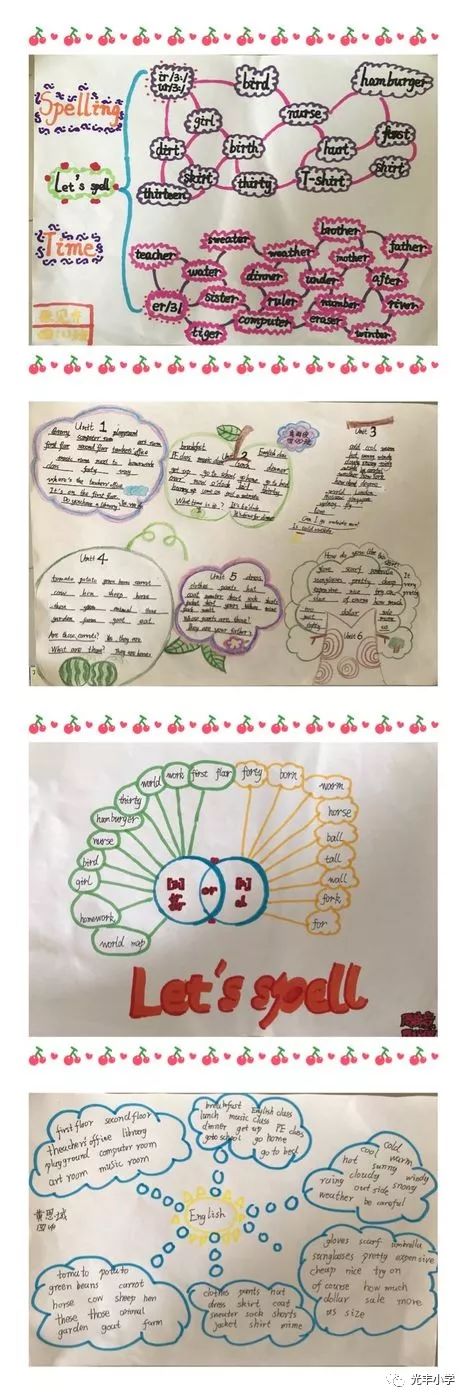 Spelling
Let's spell
Time
ir/3:/
ur/3:/
bird
hamburger
girl
nurse
first
dirt
birth
hurt
skirt
shirt
thirteen
thirty
T-shirt
er/3/
teacher
sweater
weather
brother
father
water
dinner
under
mother
after
sister
ruler
number
river
tiger
computer
eraser
winter
Unit 1
library playground
computer room art room
first floor second floor teachers' office
music room next to homework
class forty
Where's the teachers' office
It's on the first floor.
Do you have a library
Unit 2
breakfast English class
PE class music class lunch dinner
get up go to school go home go to bed
over now o'clock
hurry up come on just a minute
What time is it? It's
It's time for dinner
Unit 3
cold cool warm
hot sunny windy
cloudy snowy rainy
be careful
weather New York
how about degree
world London
Moscow Singapore
Sydney fly
love
Can I go outside
Is cold outside
Unit 4
tomato potato green beans carrot
cow hen sheep horse
these those animal
garden farm goat eat
Are these carrots? Yes they are
What are these? They are horses
Unit 5
clothes pants hat dress
coat sweater shirt sock shorts
jacket
whose mine
Whose pants are those?
They are your father's
How do you like this
glove scarf umbrella
sunglasses pretty cheap
expensive nice try on
size of course how much
too dollar sale
just more
us
It
very
pretty
Unit 6
world work first flor forty born
thirty worm
hamburger horse
nurse ball
bird tall
girl wall
homework fork
world map for
or
Let's spell
first floor second floor
theacher's office library
playground computer room
art room music room
breakfast English class
lunch music class
dinner get up PE class
goto school go home
go to best
cold
cool warm
hot sunny windy
cloudy snowy
raing out side
weather be careful
English
黄思域
四(4)
tomato potato
green beans carrot
horse cow sheep hen
these those animal
garden goat farm
clothes pants hat
dress skirt coat
sweater sock shorts
jacket shirt mime
gloves scarf umbrella
sunglasses pretty expensive
cheap nice try on
of course how much
dollar sale more
us size
光丰小学